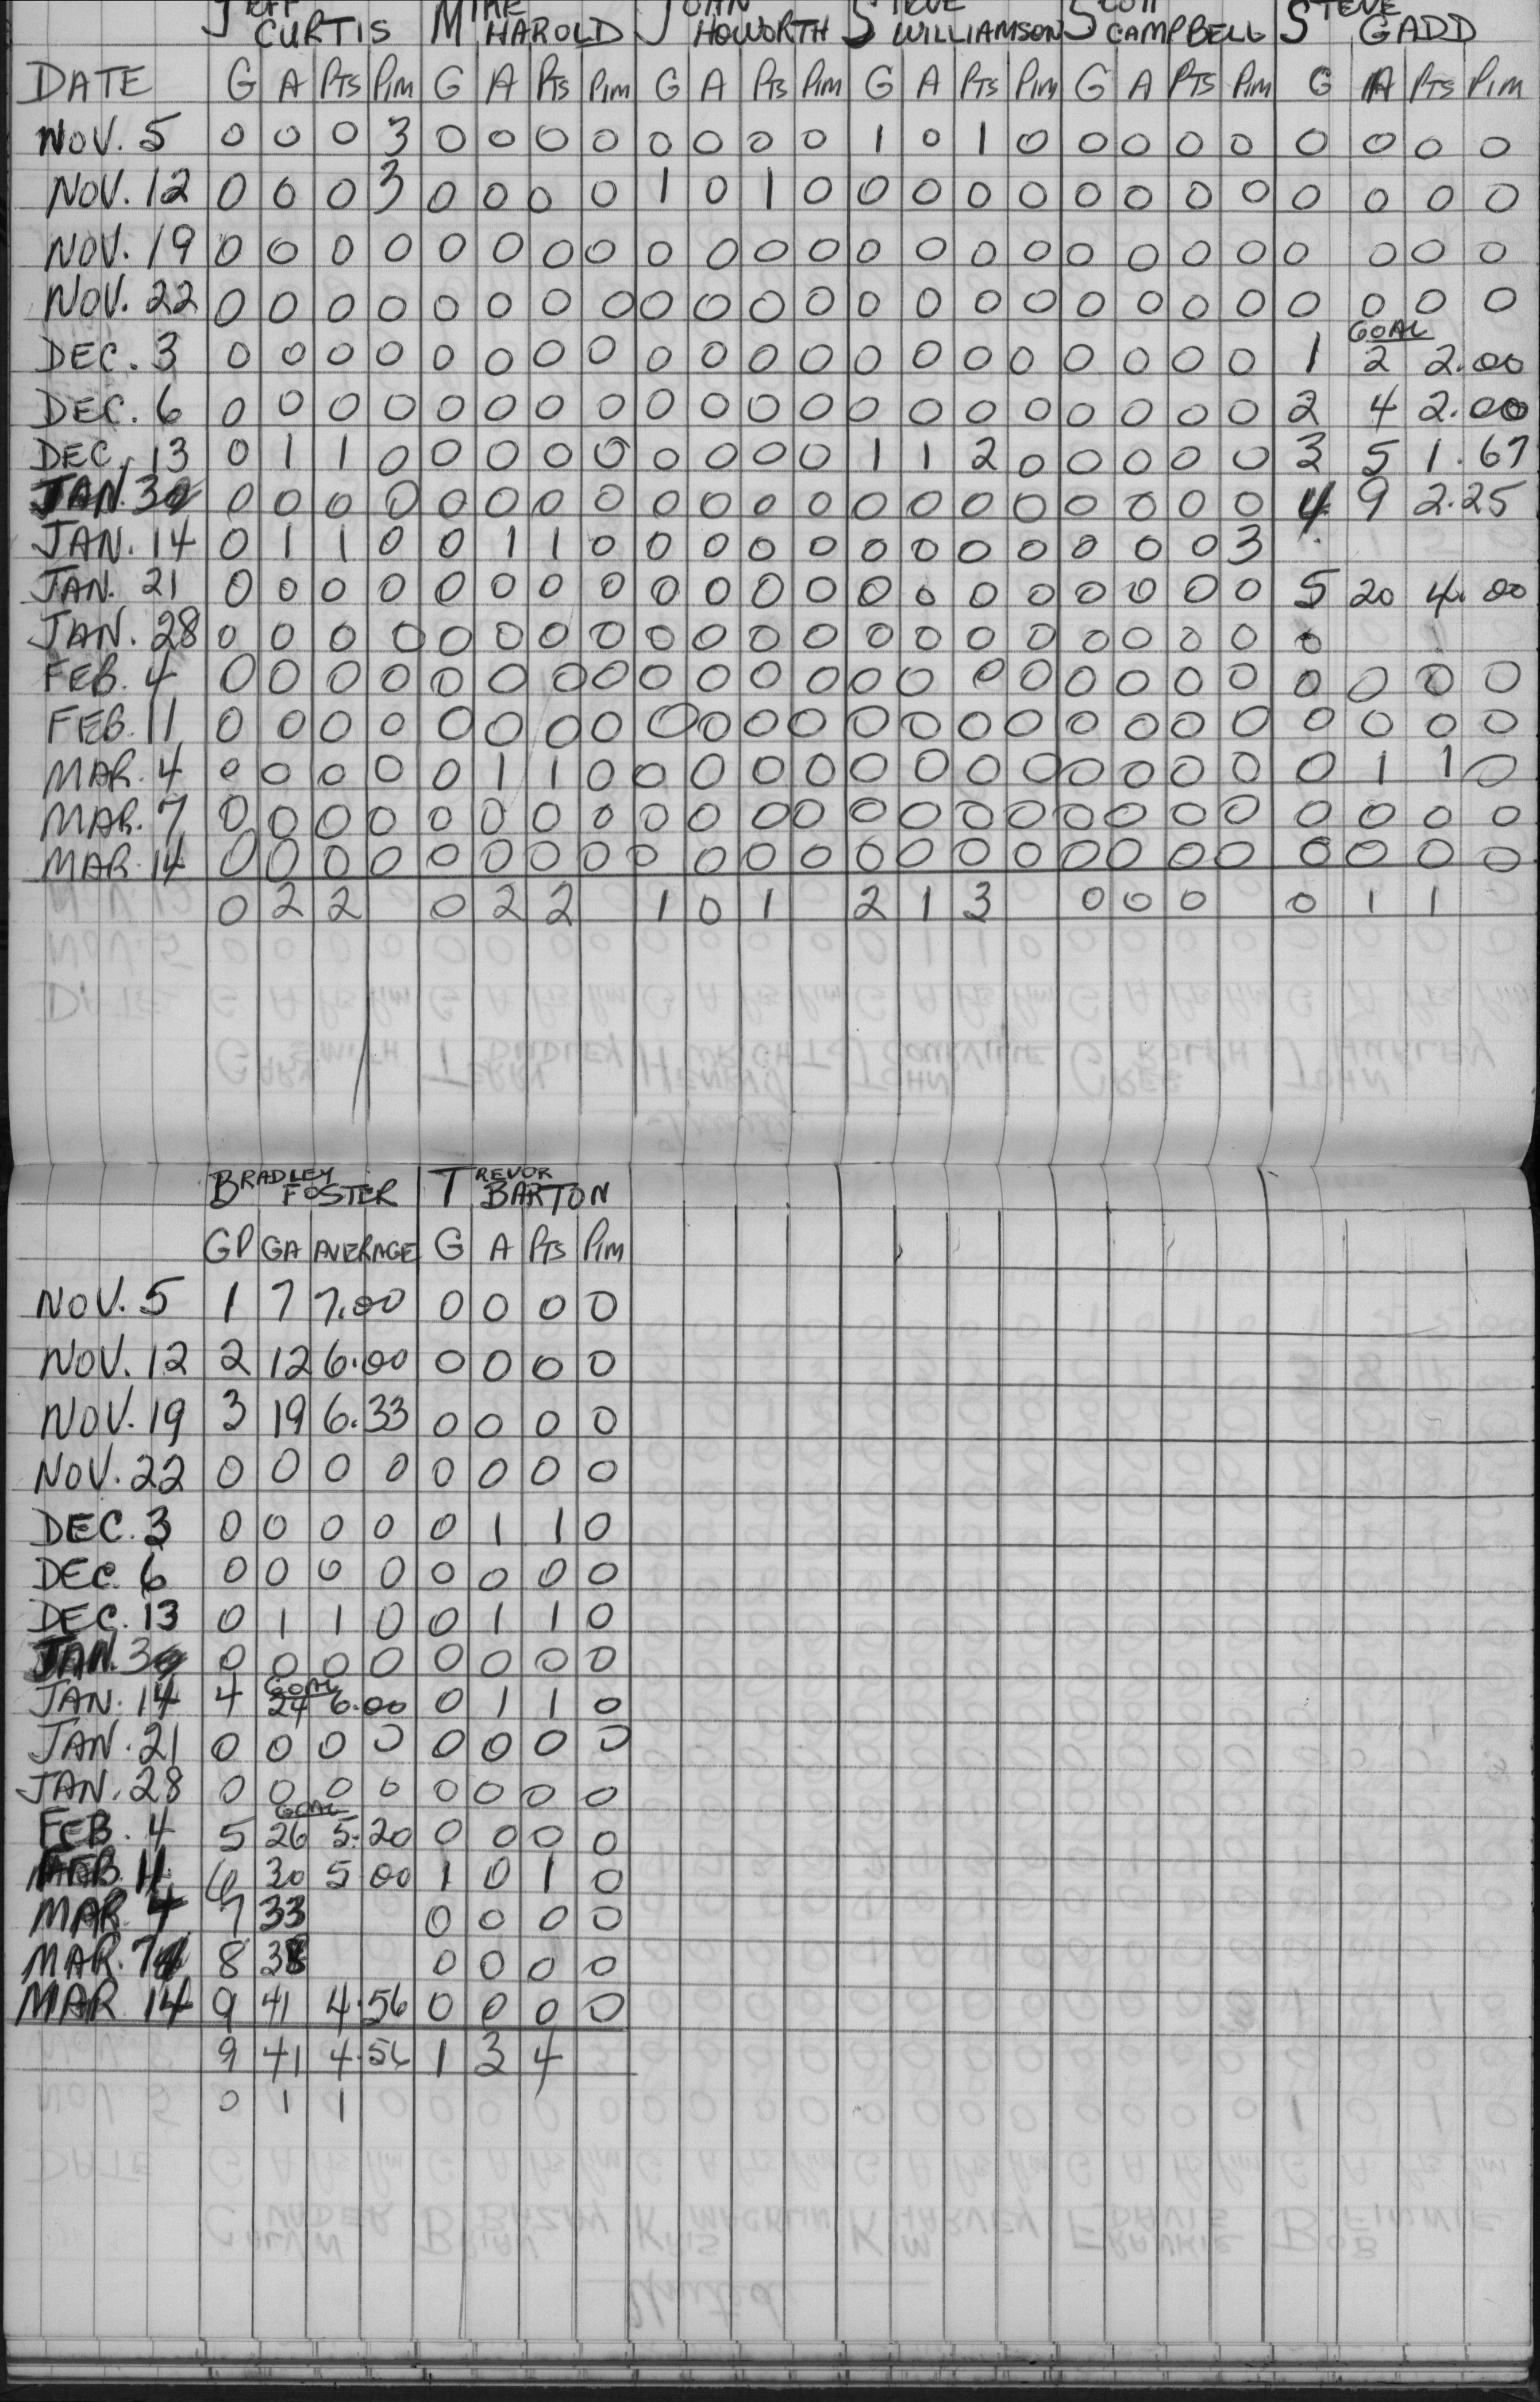 JEFF CURTIS MIKE HAROLD JOHN HOWORTH STEVE WILLIAMSON SCOTT CAMPBELL STEVE GADD
DATE G A PTS PIM G A PTS PIM G A PTS PIM G A PTS PIM G A PTS PIM G A PTS PIM
NOV. 5 0 0 0 3 0 0 0 0 0 0 0 0 1 0 1 0 0 0 0 0 0 0 0 0
NOV. 12 0 0 0 3 0 0 0 0 1 0 1 0 0 0 0 0 0 0 0 0 0 0 0 0
NOV. 19 0 0 0 0 0 0 0 0 0 0 0 0 0 0 0 0 0 0 0 0 0 0 0 0
NOV. 22 0 0 0 0 0 0 0 0 0 0 0 0 0 0 0 0 0 0 0 0 0 0 0 0
GOAL
DEC. 3 0 0 0 0 0 0 0 0 0 0 0 0 0 0 0 0 0 0 0 0 1 2 2.00
DEC. 6 0 0 0 0 0 0 0 0 0 0 0 0 0 0 0 0 0 0 0 0 2 4 2.00
DEC. 13 0 1 1 0 0 0 0 0 0 0 0 0 1 1 2 0 0 0 0 0 3 5 1.67
JAN. 3 0 0 0 0 0 0 0 0 0 0 0 0 0 0 0 0 0 0 0 0 4 9 2.25
JAN. 14 0 1 1 0 0 1 1 0 0 0 0 0 0 0 0 0 0 0 0 3
JAN. 21 0 0 0 0 0 0 0 0 0 0 0 0 0 0 0 0 0 0 0 0 5 20 4.00
JAN. 28 0 0 0 0 0 0 0 0 0 0 0 0 0 0 0 0 0 0 0 0 0
FEB. 4 0 0 0 0 0 0 0 0 0 0 0 0 0 0 0 0 0 0 0 0 0 0 0 0
FEB. 11 0 0 0 0 0 0 0 0 0 0 0 0 0 0 0 0 0 0 0 0 0 0 0 0
MAR. 4 0 0 0 0 0 1 1 0 0 0 0 0 0 0 0 0 0 0 0 0 0 1 1 0
MAR. 7 0 0 0 0 0 0 0 0 0 0 0 0 0 0 0 0 0 0 0 0 0 0 0 0
MAR. 14 0 0 0 0 0 0 0 0 0 0 0 0 0 0 0 0 0 0 0 0 0 0 0 0
0 2 2 0 2 2 1 0 1 2 1 3 0 0 0 0 1 1
BRADLEY FOSTER TREVOR BARTON
GP GA AVERAGE G A PTS PIM
NOV. 5 1 7 7.00 0 0 0 0
NOV. 12 2 12 6.00 0 0 0 0
NOV. 19 3 19 6.33 0 0 0 0
NOV. 22 0 0 0 0 0 0 0 0
DEC. 3 0 0 0 0 0 1 1 0
DEC. 6 0 0 0 0 0 0 0 0
DEC. 13 0 1 1 0 0 1 1 0
JAN. 3 0 0 0 0 0 0 0 0
GOAL
JAN. 14 4 24 6.00 0 1 1 0
JAN. 21 0 0 0 0 0 0 0 0
JAN. 28 0 0 0 0 0 0 0 0
GOAL
FEB. 4 5 26 5.20 0 0 0 0
FEB. 11 6 30 5 00 1 0 1 0
MAR 4 7 33 0 0 0 0
MAR. 7 8 38 0 0 0 0
MAR 14 9 41 4.56 0 0 0 0
9 41 4.56 1 3 4
0 1 1